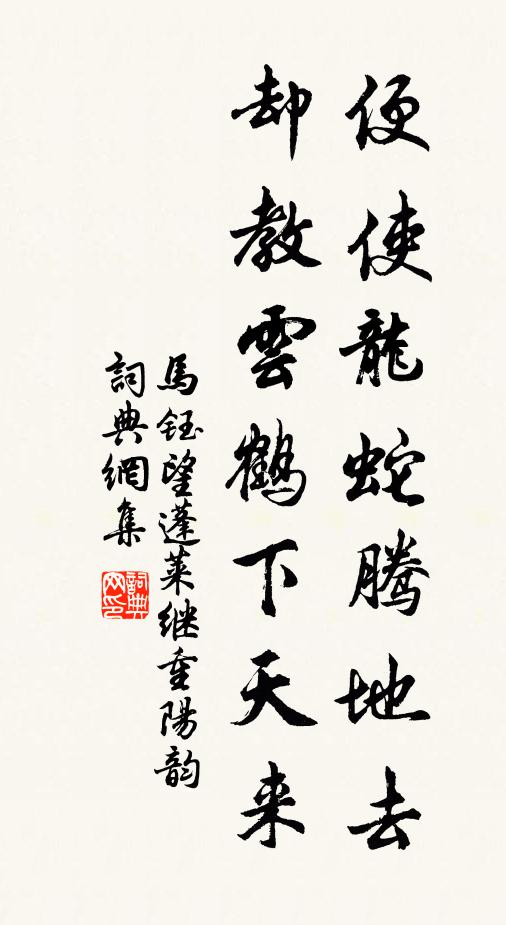 便使龍蛇騰地去
却教雲鶴下天来
馬鈺望蓬莱继重陽韵
詞典網集
詞典网印